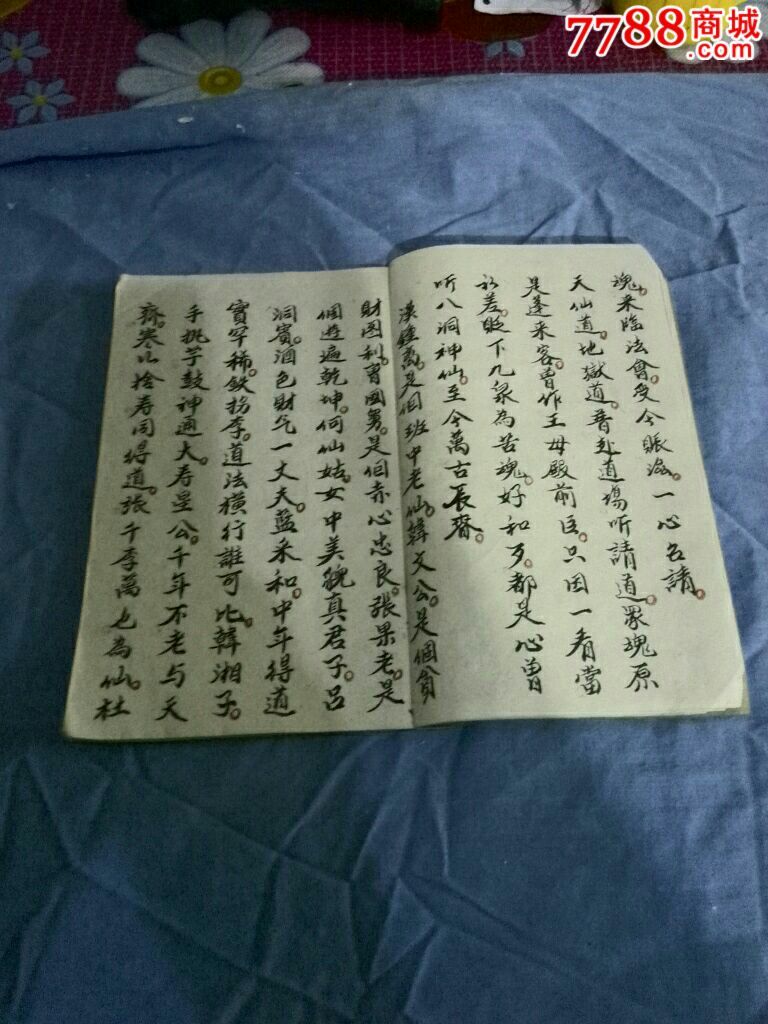 7788商城
.com
魂来臨法會受今賑濟。一心召請。
天仙道。地獄道。普赴道場听請道。眾魂原
是蓬来客。曾作王母殿前臣。只因一看當
初差。貶下九泉為苦魂。好和歹都是心曽
听八洞神仙。至今萬古長春。
漢鐘离。是個班中老仙。韓文公。是個貪
財图利。曹國舅。是個赤心忠良。張果老。是
個遊遍乾坤。何仙姑。女中美貌真君子。吕
洞賓。酒色財气一丈夫。藍采和。中年得道
寳罕稀。鉄拐李。道法橫行誰可比。韓湘子。
手挑芋鼓神通大。寿星公。千年不老与天
齊。寿同得道。張千李萬也為仙。杜